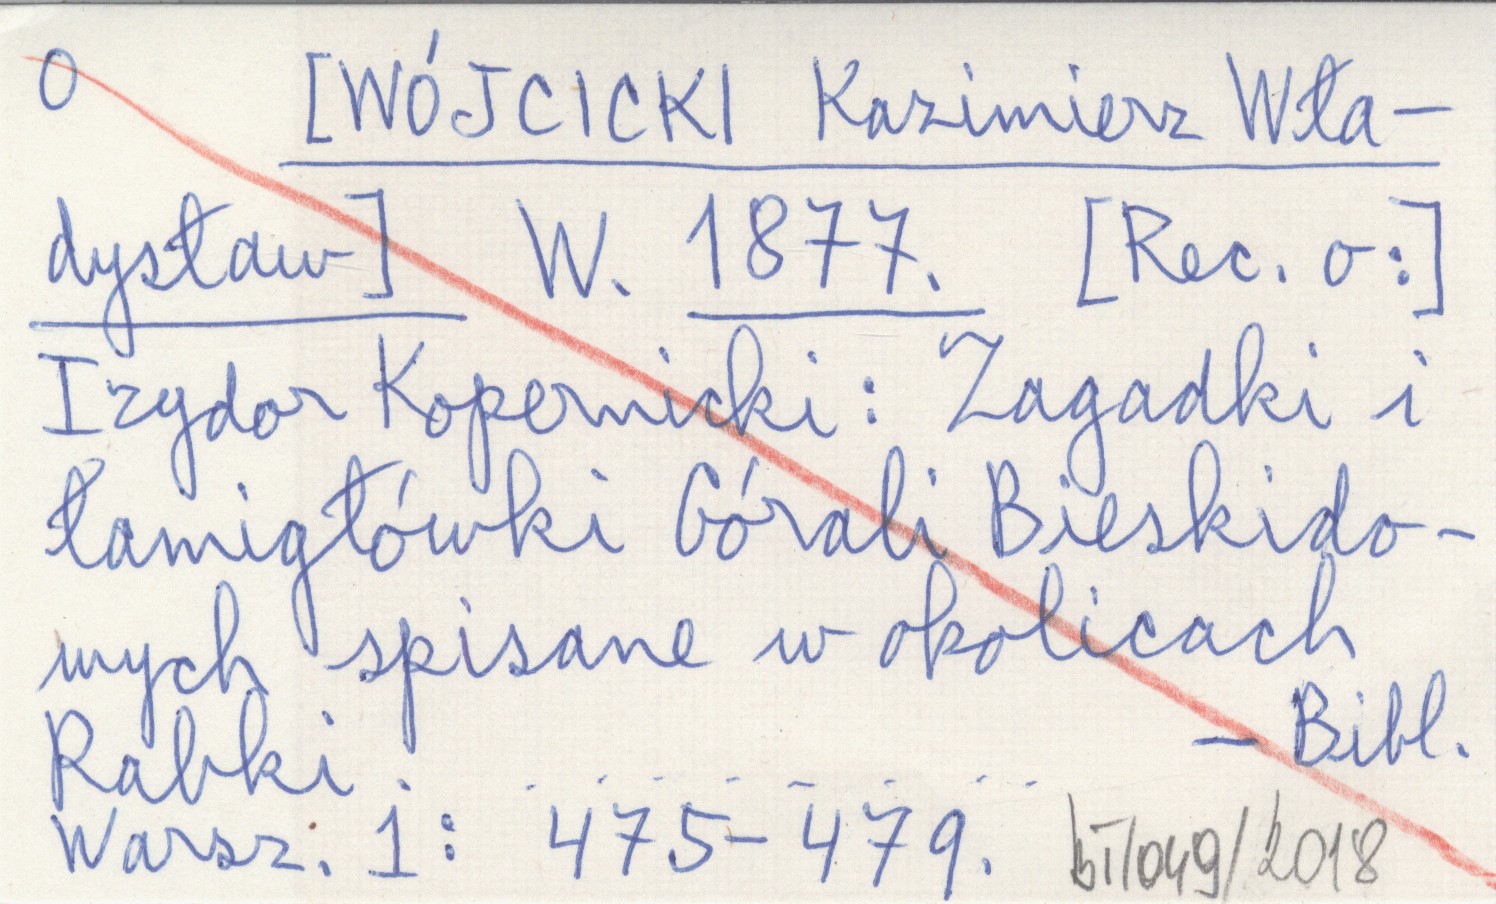 O [WÓJCICKI Kazimierz Wła-
dysław] W. 1877. [Rec. o:]
Izydor Kopernicki: Zagadki i
łamigłówki Górali Bieskido-
wych spisane w okolicach
Rabki. – Bibl.
Warsz. 1: 475-479. bT/049/2018